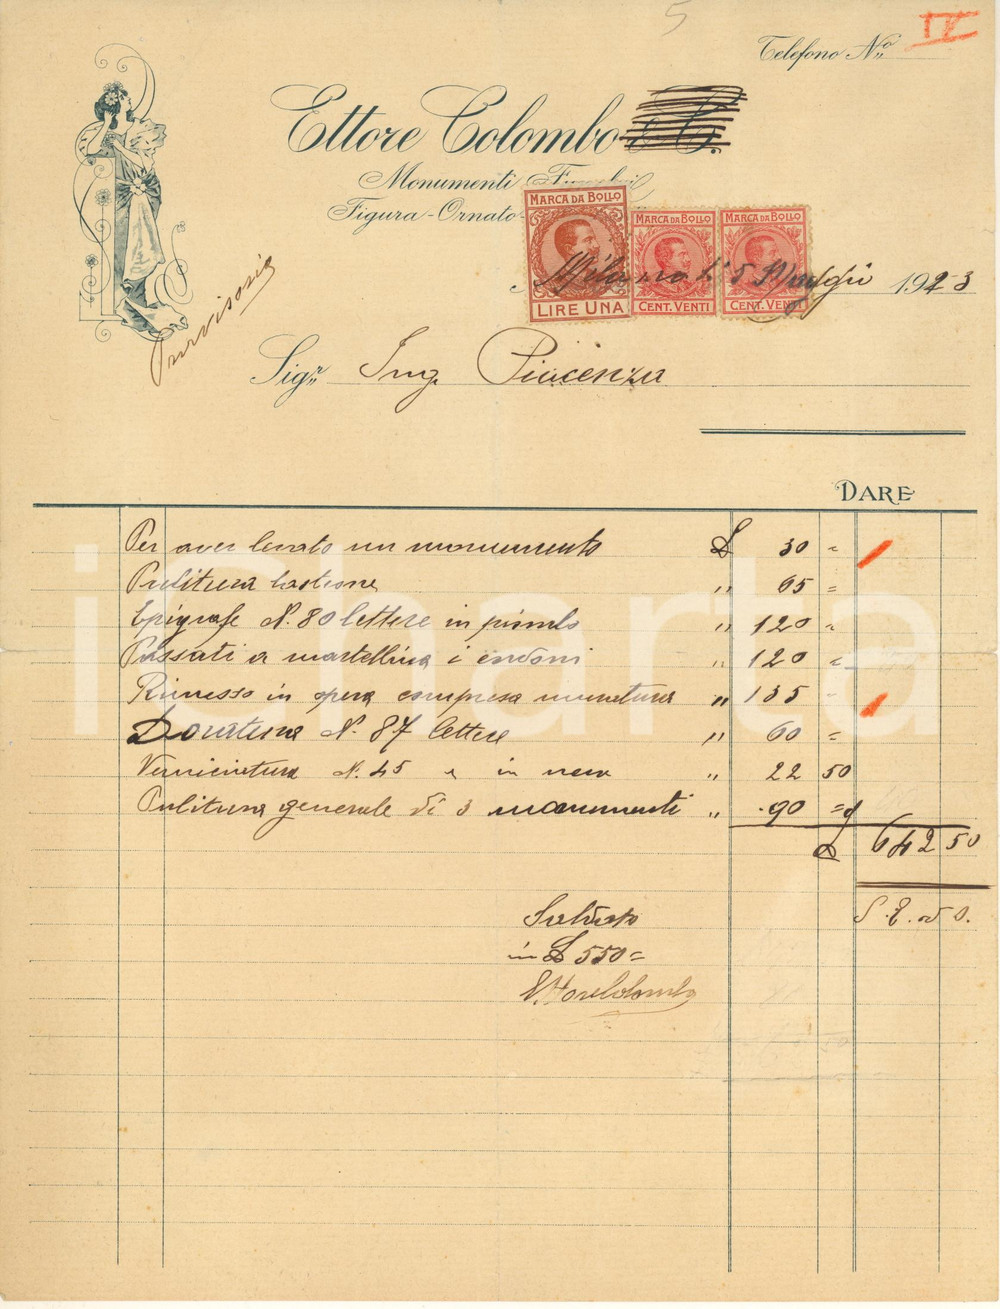 5
IV
Telefono No
Ettore Colombo & C.
Monumenti Funebri
Figura-Ornato-
MARCA DA BOLLO
LIRE UNA
MARCA DA BOLLO
CENT. VENTI
MARCA DA BOLLO
CENT. VENTI
Milano li 5 Maggio 1923
Provvisorio
Sigr. Ing. Piacenza
DARE
Per aver levato un monumento £ 30 =
Pulitura bastione " 65 =
Epigrafe N. 80 lettere in piombo " 120 =
Passati a martellina i cordoni " 120 =
Rimesso in opera compresa muratura " 135 "
Doratura N. 87 lettere " 60 =
Verniciatura N. 45 " in nero " 22 50
Pulitura generale di 3 monumenti " 90 =
£ 642 50
S. E. od O.
Saldato
in £ 550 =
Ettore Colombo
iCharta